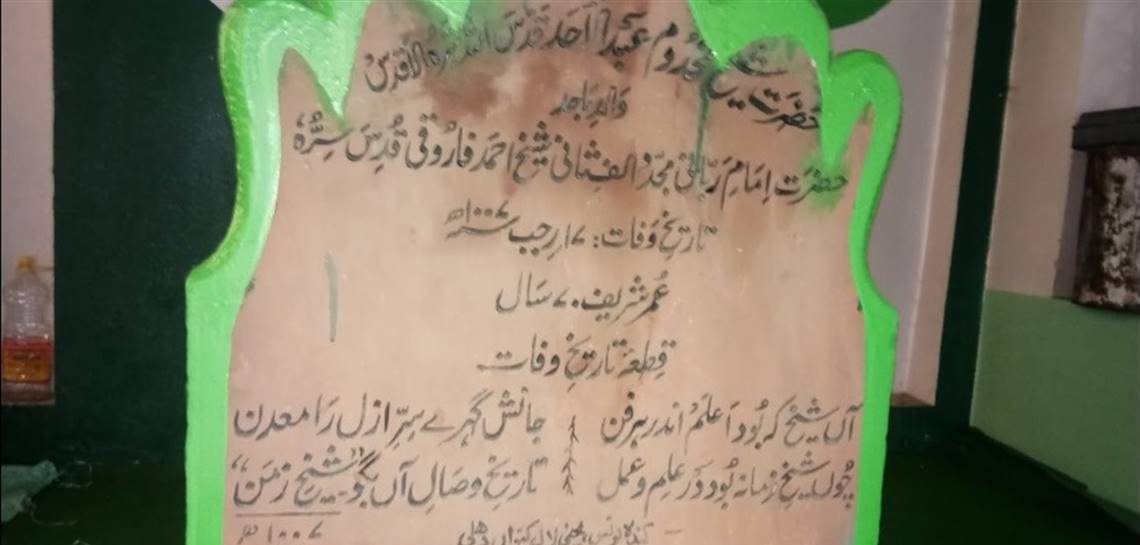 حضرت شیخ مخدوم عبدالاحد قدس اللہ سرہ الاقدس
والد ماجد
حضرت امام ربانی مجدد الف ثانی شیخ احمد فاروقی قدس سرہ
تاریخ وفات: ۱۷ رجب ۱۰۰۷ھ
عمر شریف ۷۰ سال
قطعۂ تاریخ وفات
آں شیخ کہ بود اعلم اندر ہر فن جانش گہرے سرِ ازل را معدن
چوں شیخ زمانہ بود در علم و عمل تاریخ وصال آں بگو "شیخ زمن"
۱۰۰۷ھ
دھلی